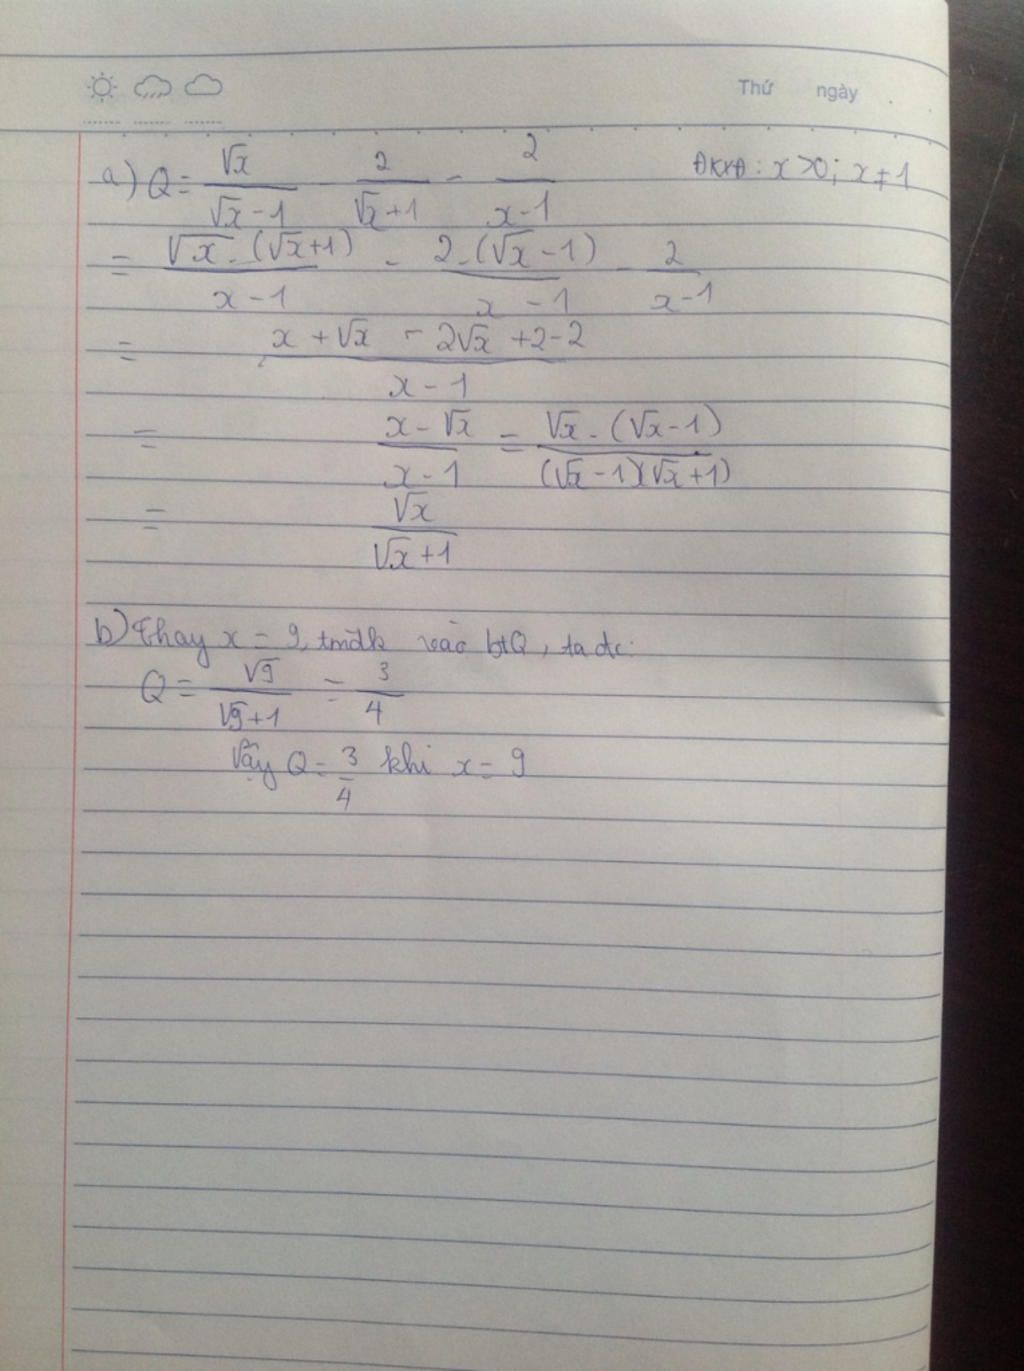 Thứ ngày
a) Q = √x / (√x - 1) - 2 / (√x + 1) - 2 / (x - 1) ĐKXĐ: x > 0; x ≠ 1
= √x . (√x + 1) / (x - 1) - 2 . (√x - 1) / (x - 1) - 2 / (x - 1)
= (x + √x - 2√x + 2 - 2) / (x - 1)
= (x - √x) / (x - 1) = √x . (√x - 1) / (√x - 1)(√x + 1)
= √x / (√x + 1)
b) Thay x = 9, tmđk vào btQ, ta đc:
Q = √9 / (√9 + 1) = 3/4
Vậy Q = 3/4 khi x = 9